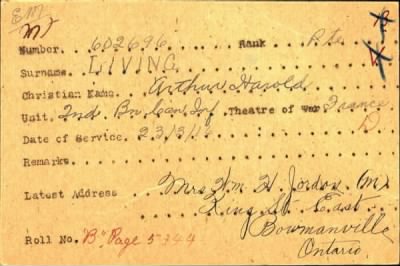 EM
M
Number. 602696 Rank Pte
Surname. LIVING
Christian Name. Arthur Harold
Unit. 2nd Bn. Can. Inf. Theatre of war France
D
Date of Service. 23/3/16
Remarks.
Latest Address Mrs. Wm. H. Jordon (M)
King St. East
Bowmanville
Ontario.
Roll No. "B" Page 5744